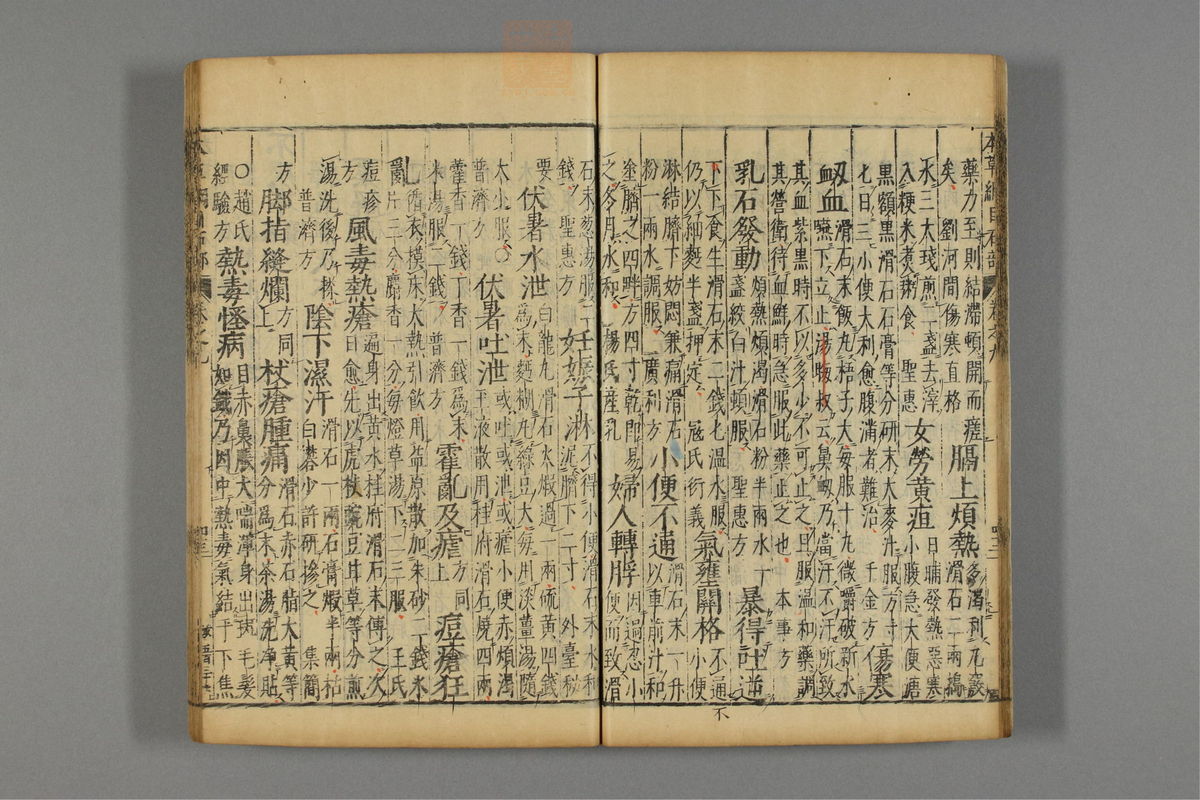 本草綱目石部
藥力至則結滯頓開而瘥
矣 劉河間傷寒直格
膈上煩熱
多渴利九竅
滑石二兩搗
水三大琖煎二盞去滓
入粳米煮粥食 聖惠
女勞黃疸
日晡發熱惡寒
小腹急大便溏
黑額黑滑石石膏等分研末大麥汁服方寸
匕日三小便大利愈腹滿者難治 千金方
傷寒
衂血
滑石末飯丸梧子大每服十丸微嚼破新水
嚥下立止湯晦叔云鼻衂乃當汗不汗所致
其血紫黑時不以多少不可止之且服溫和藥調
其營衛待血鮮時急服此藥止之也 本事方
乳石發動
煩熱煩渴滑石粉半兩水一
盞絞白汁頓服 聖惠方
暴得吐逆
不
下下食生滑石末二錢匕溫水服
仍以細麪半盞押定 寇氏衍義
氣壅關格
不通
小便
淋結臍下妨悶兼痛滑石
粉一兩水調服 廣利方
小便不通
滑石末一升
以車前汁和
塗臍之四畔方四寸乾即易
之冬月水和 楊氏產乳
婦人轉脬
因過忍小
便而致滑
石末葱湯服二
錢 聖惠方
妊娠子淋
不得小便滑石末水和
泥臍下二寸 外臺秘
要
伏暑水泄
白龍丸滑石火煅過一兩硫黃四錢
為末麵糊丸綠豆大每用淡薑湯隨
大小服○
普濟方
伏暑吐泄
或吐或泄或瘧小便赤煩渴
玉液散用桂府滑石燒四兩
藿香一錢丁香一錢為末
米湯服二錢 普濟方
霍亂及瘧
方同
上
痘瘡狂
亂
循衣摸床大熱引飲用益原散加朱砂二錢氷
片三分麝香一分每燈草湯下二三服 王氏
痘疹
方
風毒熱瘡
遍身出黃水桂府滑石末傅之次
日愈先以虎杖豌豆甘草等分煎
湯洗後乃搽
普濟方
陰下濕汗
滑石一兩石膏煅半兩枯
白礬少許研摻之 集簡
方
脚指縫爛
方同
上
杖瘡腫痛
滑石赤石脂大黃等
分為末茶湯洗淨貼
○趙氏
經驗方
熱毒怪病
目赤鼻脹大喘渾身出斑毛髮
如鐵乃因中熱毒氣結于下焦